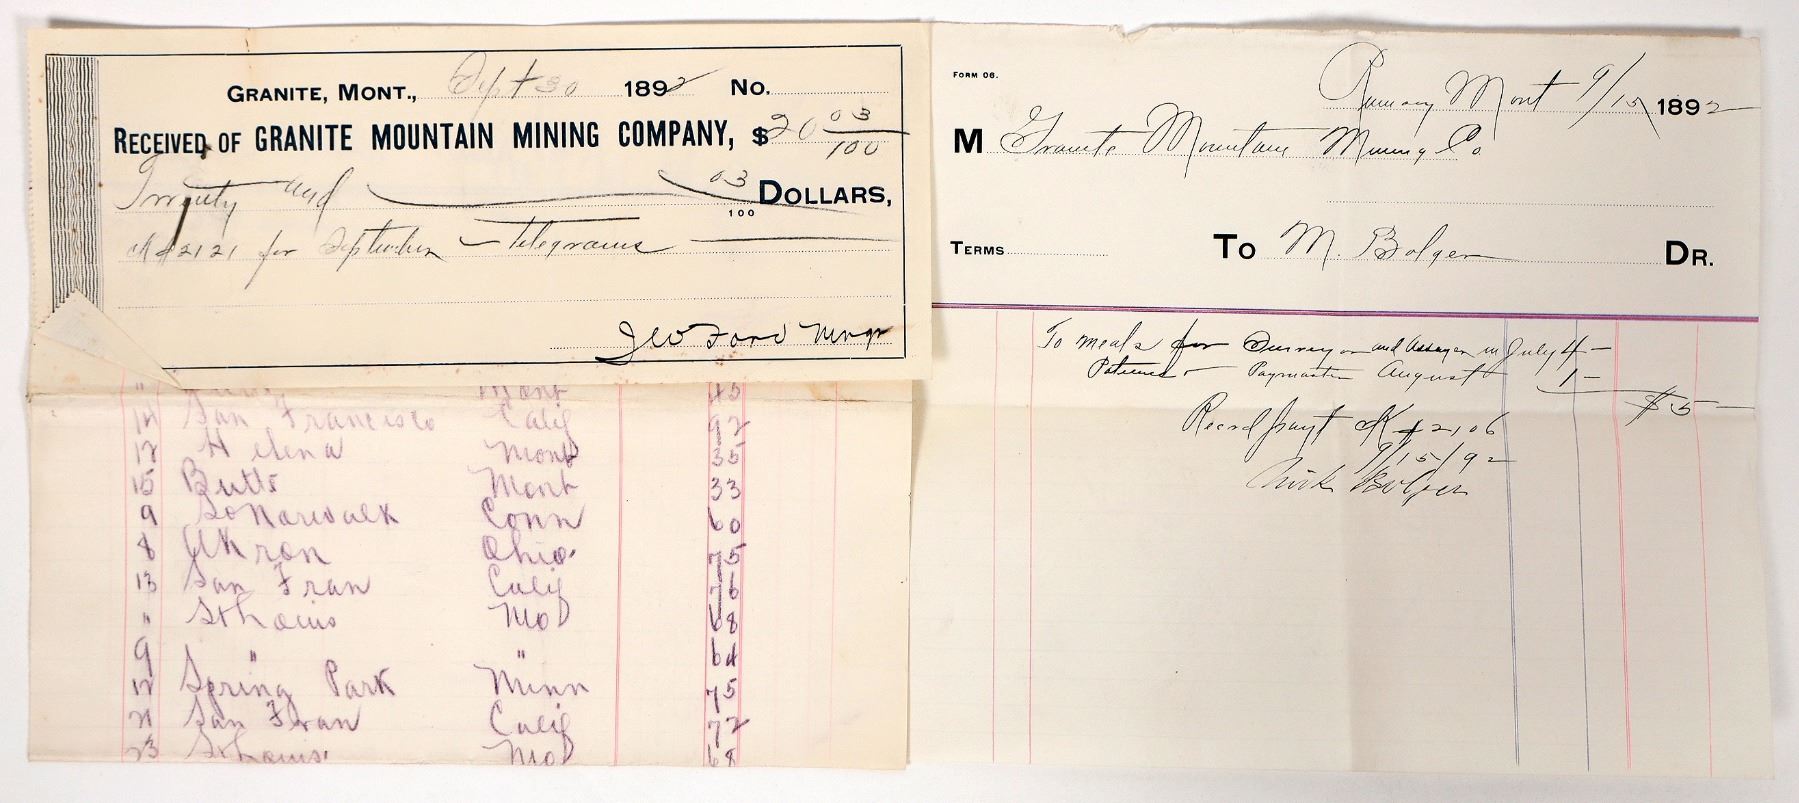 GRANITE, MONT., Sept 30 1892 No.
RECEIVED OF GRANITE MOUNTAIN MINING COMPANY, $20 03/100
Twenty and 03/100 DOLLARS,
#2121 for September Telegrams
Geo Ford Mngr
" Mont 45
14 San Francisco Calif 92
12 Helena Mont 35
15 Butte Mont 33
9 So Norwalk Conn 60
8 Akron Ohio 75
13 San Fran Calif 76
" St Louis Mo 68
9 " " 64
12 Spring Park Minn 75
21 San Fran Calif 72
23 St Louis Mo 68
FORM 06.
Mont 9/15 1892
M Granite Mountain Mining Co
TERMS To M. Bolger DR.
To meals for Surveyor and Assayer in July 4 –
Paymaster August 1 –
$5 –
Recd paymt #2106
9/15/92
Nick Bolger